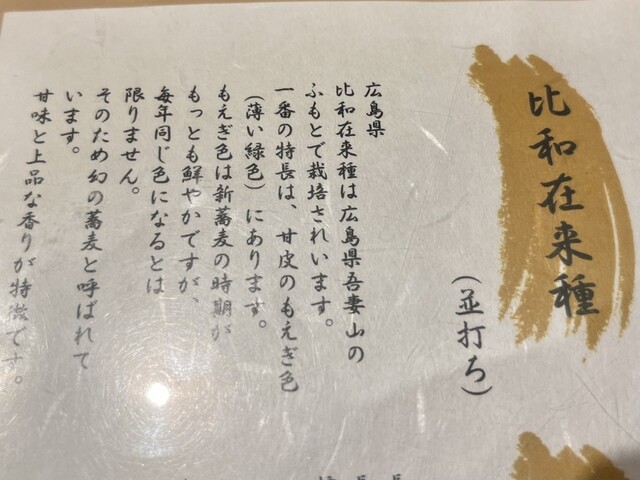 比和在来種
(並打ち)
広島県
比和在来種は広島県吾妻山の
ふもとで栽培されいます。
一番の特長は、甘皮のもえぎ色
(薄い緑色)にあります。
もえぎ色は新蕎麦の時期が
もっとも鮮やかですが、
毎年同じ色になるとは
限りません。
そのため幻の蕎麦と呼ばれて
います。
甘味と上品な香りが特徴です。